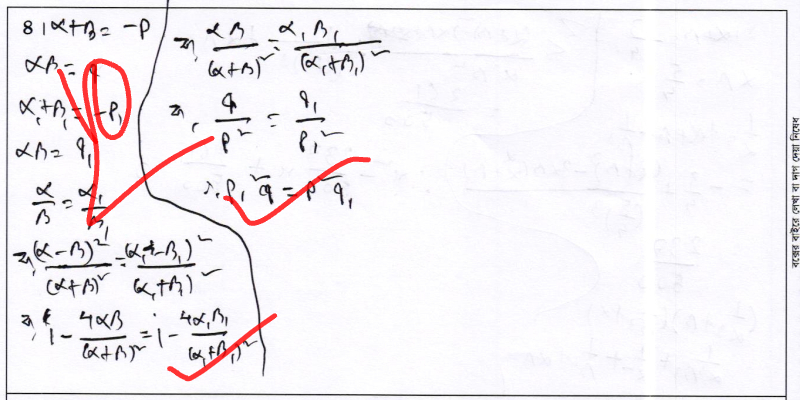 ৪। α+β = -P
αβ = q
α₁+β₁ = -P₁
αβ = q₁
α/β = α₁/β₁
বা, (α-β)²/(α+β)² = (α₁-β₁)²/(α₁+β₁)²
বা, 1 - 4αβ/(α+β)² = 1 - 4α₁β₁/(α₁+β₁)²
বা, αβ/(α+β)² = α₁β₁/(α₁+β₁)²
বা, q/P² = q₁/P₁²
∴ P₁²q = P²q₁
বক্সের বাইরে লেখা বা দাগ দেয়া নিষেধ